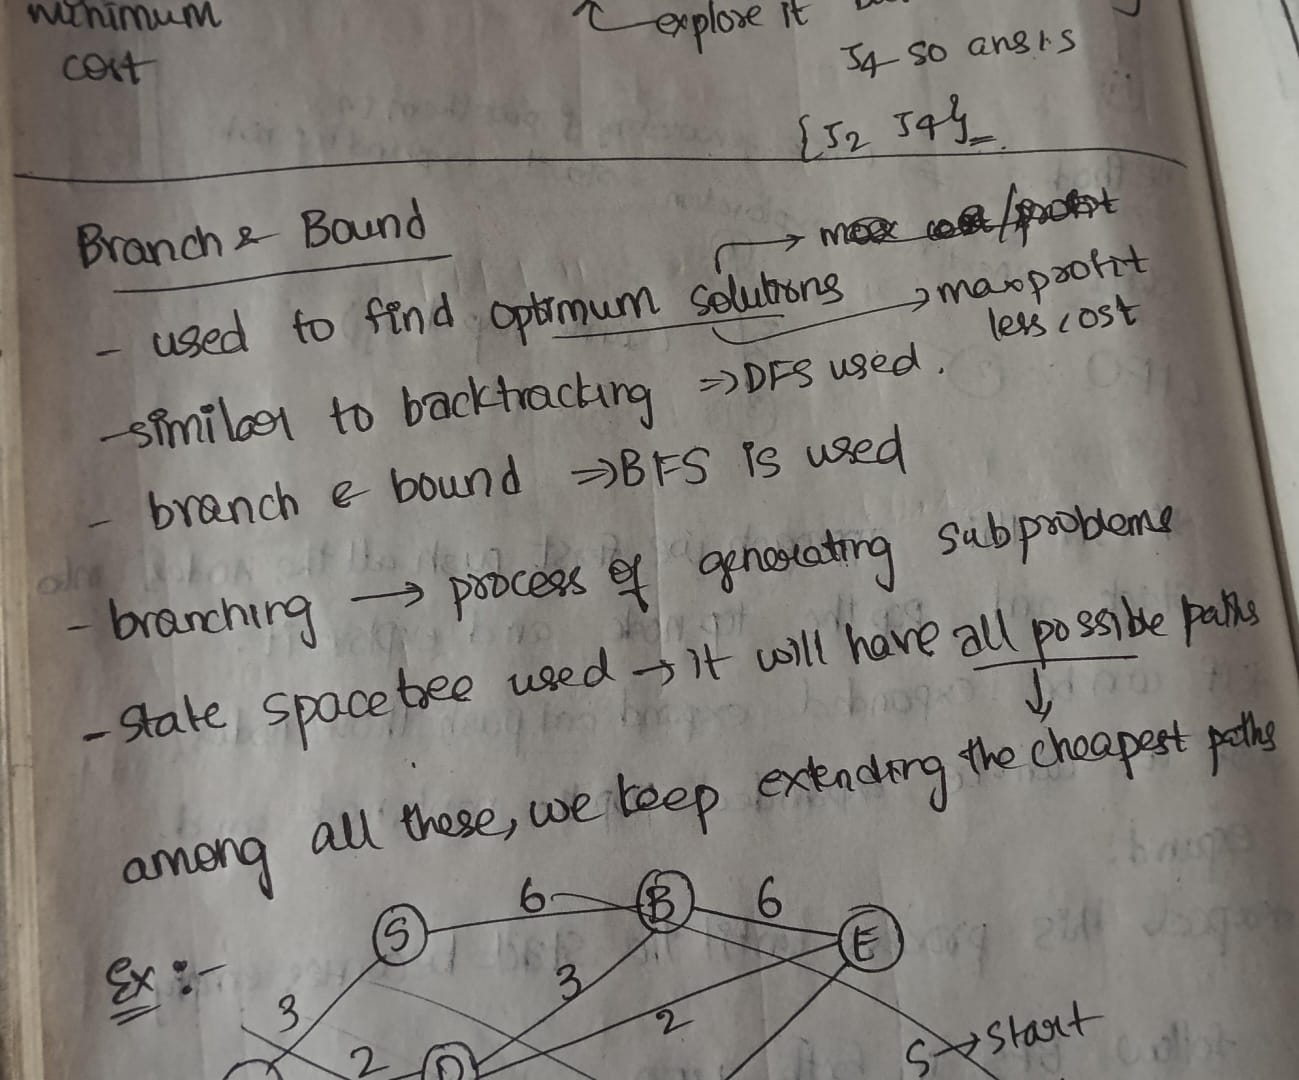 minimum
cost
explore it
J4 so ans is
{J2 J4}
Branch & Bound
- used to find optimum solutions → max profit
less cost
- similar to backtracking ⇒ DFS used.
- branch & bound ⇒ BFS is used
- branching → process of generating subproblems
- state space tree used → it will have all possible paths
among all these, we keep extending the cheapest paths
Ex :-
S 6 B 6 E
3 3 2
2 D
S → start